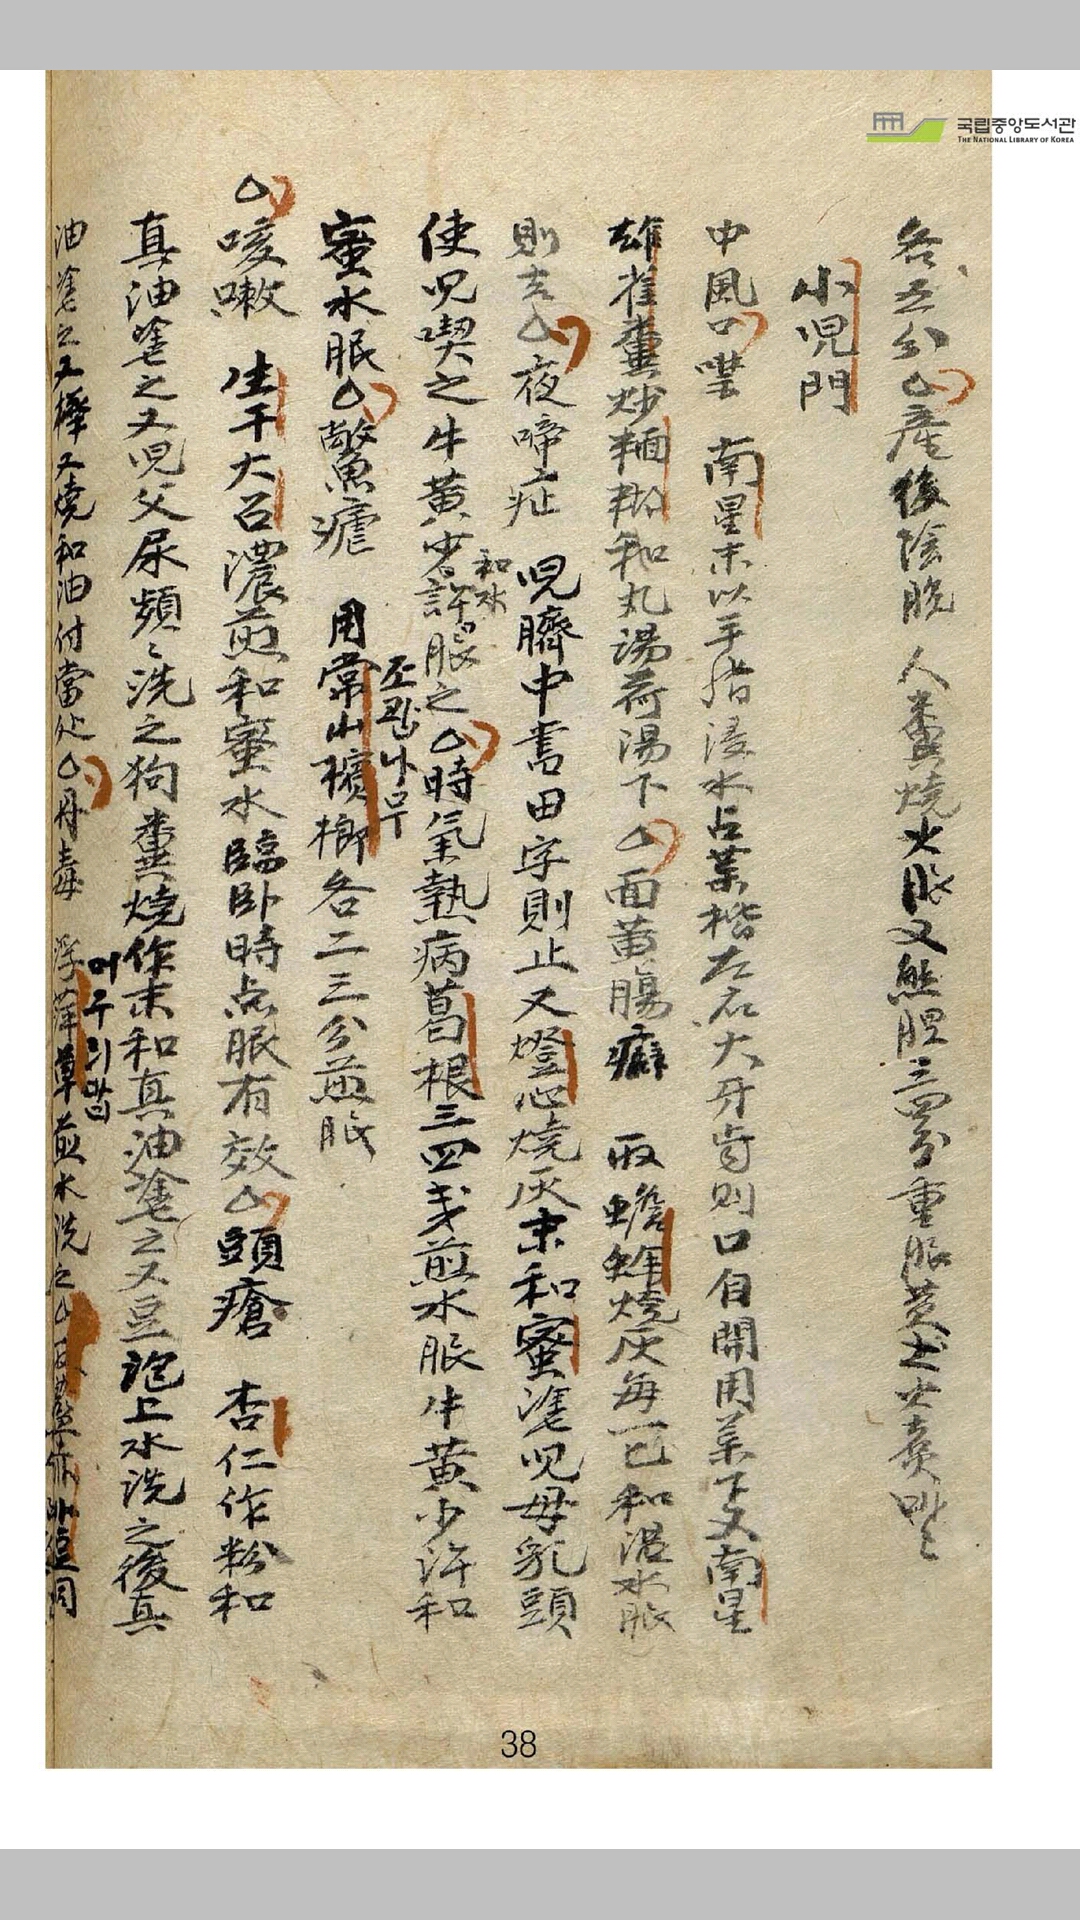 各五分△産後陰脫 人糞燒火服又熊胆三四分重服黃土火煮
小児門
中風口噤 南星末以手指浸水占藥揩左右大牙齒則口自開用藥下又南星
雄雀糞炒麵糊和丸湯荷湯下△面黃腸癖 取蟾蜍燒灰每一匕和溫水服
則去△夜啼症 児臍中書田字則止又燈心燒灰末和蜜塗児母乳頭
使児喫之牛黃少許和水服之△時氣熱病葛根三四戔煎水服牛黃少許和
蜜水服△驚瘧 用常山檳榔各二三分煎服
조팝나무
△咳嗽 生干大召濃煎和蜜水臨卧時点服有效△頭瘡 杏仁作粉和
真油塗之又児父尿頻〻洗之狗糞燒作末和真油塗之又豆泡上水洗之後真
油塗之又樺又燒和油付當处△丹毒 浮萍草煎水洗之△
머구리밥
38
국립중앙도서관
THE NATIONAL LIBRARY OF KOREA